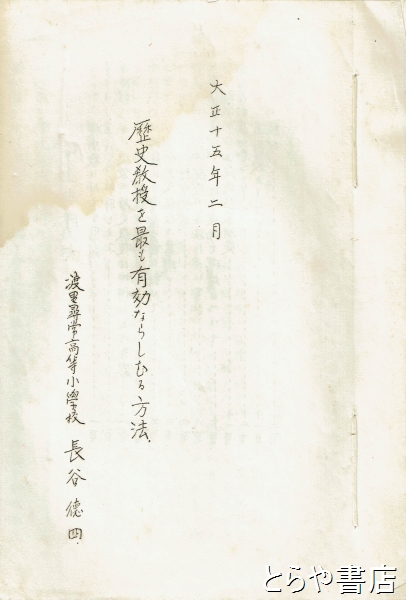 大正十五年二月
歴史教授を最も有効ならしむる方法.
渡里尋常高等小學校 長谷徳四.
とらや書店